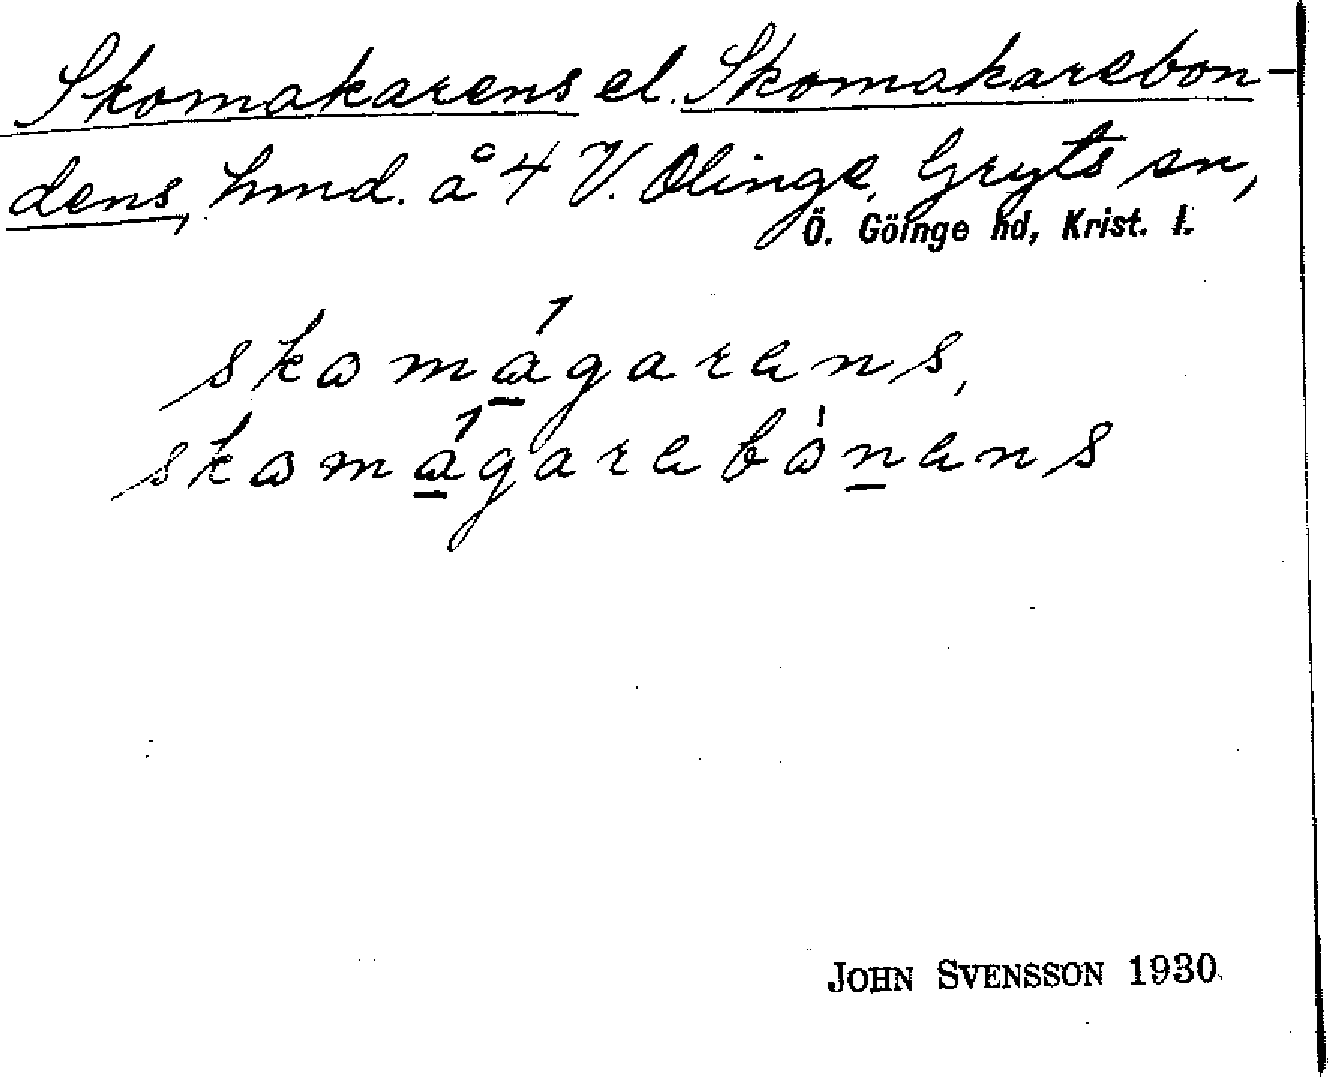 Skomakarens el. Skomakarebon-
dens, hmd. å 4 V. Olinge, Gryts sn,
Ö. Göinge hd, Krist. l.
skomágarens,
skomágarebónens
JOHN SVENSSON 1930